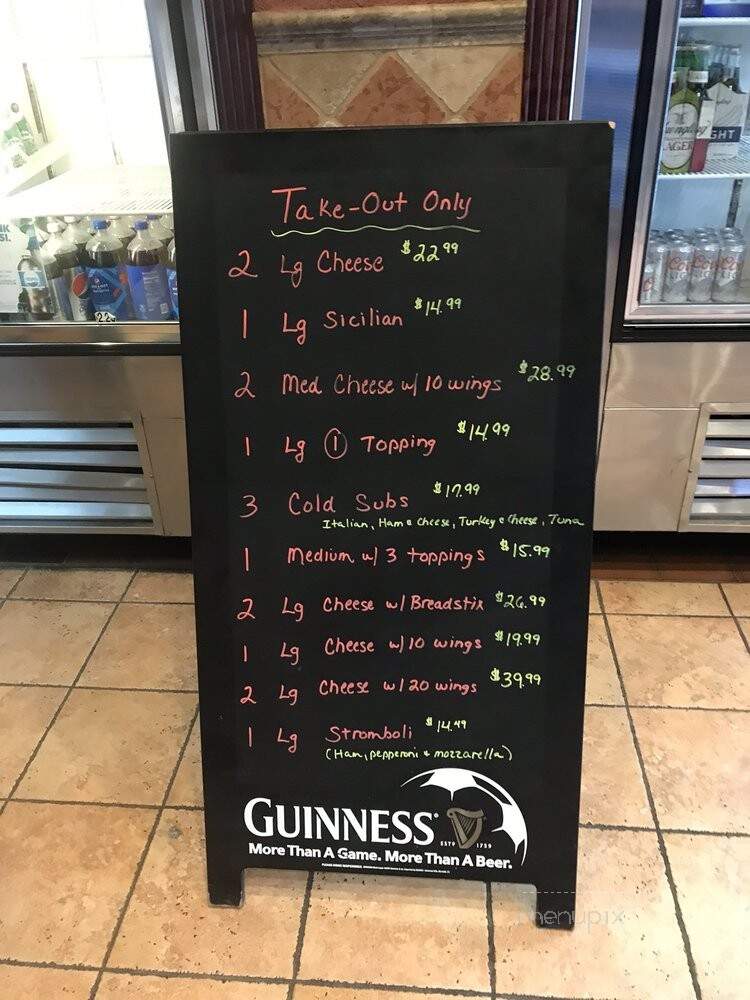 Take-Out Only
2 Lg Cheese $22.99
1 Lg Sicilian $14.99
2 Med Cheese w/ 10 wings $28.99
1 Lg 1 Topping $14.99
3 Cold Subs $17.99
Italian, Ham & Cheese, Turkey & Cheese, Tuna
1 Medium w/ 3 toppings $15.99
2 Lg Cheese w/ Breadstix $26.99
1 Lg Cheese w/ 10 wings $19.99
2 Lg Cheese w/ 20 wings $39.99
1 Lg Stromboli $14.49
(Ham, pepperoni & mozzarella)
GUINNESS
ESTD 1759
More Than A Game. More Than A Beer.
menupix